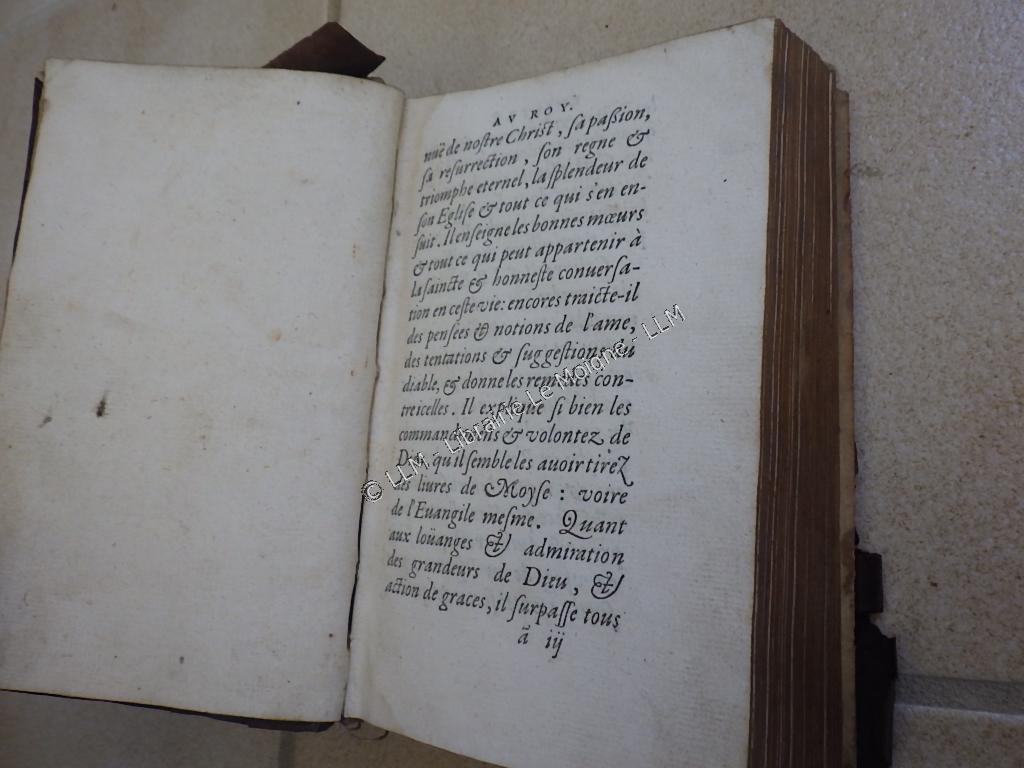 AV ROY.
nuë de nostre Christ, sa passion,
sa resurrection, son regne &
triomphe eternel, la splendeur de
son Eglise & tout ce qui s'en en-
suit. Il enseigne les bonnes mœurs
& tout ce qui peut appartenir à
la saincte & honneste conuersa-
tion en ceste vie: encores traicte-il
des pensées & notions de l'ame,
des tentations & suggestions du
diable, & donne les remedes con-
tre icelles. Il explique si bien les
commandemens & volontez de
Dieu, qu'il semble les auoir tirez
des liures de Moyse: voire
de l'Euangile mesme. Quant
aux loüanges & admiration
des grandeurs de Dieu, &
action de graces, il surpasse tous
ã iij
© LLM - Librairie Le Moigne - LLM